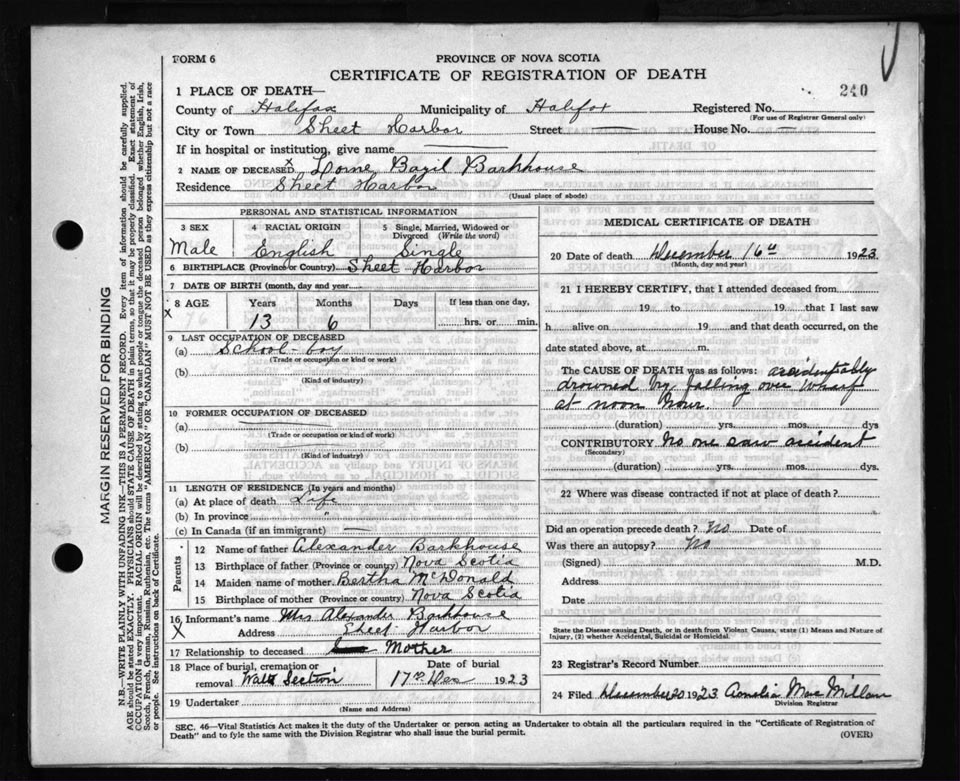 FORM 6
PROVINCE OF NOVA SCOTIA
CERTIFICATE OF REGISTRATION OF DEATH
240
1 PLACE OF DEATH—
County of Halifax Municipality of Halifax Registered No.
(For use of Registrar General only)
City or Town Sheet Harbor Street — House No. —
If in hospital or institution, give name —
2 NAME OF DECEASED X Lorne Bazil Barkhouse
Residence Sheet Harbor
(Usual place of abode)
PERSONAL AND STATISTICAL INFORMATION
3 SEX 4 RACIAL ORIGIN 5 Single, Married, Widowed or Divorced (Write the word)
Male English Single
6 BIRTHPLACE (Province or Country) Sheet Harbor
7 DATE OF BIRTH (month, day and year)
8 AGE Years Months Days If less than one day,
X 13 6 hrs. or min.
9 LAST OCCUPATION OF DECEASED
(a) School-boy
(Trade or occupation or kind or work)
(b)
(Kind of industry)
10 FORMER OCCUPATION OF DECEASED
(a)
(Trade or occupation or kind of work)
(b)
(Kind of industry)
11 LENGTH OF RESIDENCE (In years and months)
(a) At place of death Life
(b) In province "
(c) In Canada (if an immigrant) —
Parents
12 Name of father Alexander Barkhouse
13 Birthplace of father (Province or country) Nova Scotia
14 Maiden name of mother Bertha McDonald
15 Birthplace of mother (Province or country) Nova Scotia
16 Informant's name Mrs Alexander Barkhouse
X Address Sheet Harbor
17 Relationship to deceased Mother
18 Place of burial, cremation or removal Date of burial
Section 17th Dec 1923
19 Undertaker
(Name and Address)
MEDICAL CERTIFICATE OF DEATH
20 Date of death December 16th 1923
(Month, day and year)
21 I HEREBY CERTIFY, that I attended deceased from
19 to 19 that I last saw
h alive on 19 and that death occurred, on the
date stated above, at m.
The CAUSE OF DEATH was as follows: accidentably
drowned by falling over wharf
at noon hour.
(duration) yrs. mos. dys
CONTRIBUTORY No one saw accident
(Secondary)
(duration) yrs. mos. dys.
22 Where was disease contracted if not at place of death?
Did an operation precede death? No Date of
Was there an autopsy? No
(Signed) M.D.
Address
Date
State the Disease causing Death, or in death from Violent Causes, state (1) Means and Nature of
Injury, (2) whether Accidental, Suicidal or Homicidal.
23 Registrar's Record Number
24 Filed December 20 1923 MacMillan
Division Registrar
SEC. 46—Vital Statistics Act makes it the duty of the Undertaker or person acting as Undertaker to obtain all the particulars required in the "Certificate of Registration of
Death" and to fyle the same with the Division Registrar who shall issue the burial permit.
(OVER)
MARGIN RESERVED FOR BINDING
N.B.—WRITE PLAINLY WITH UNFADING INK—THIS IS A PERMANENT RECORD. Every item of information should be carefully supplied.
AGE should be stated EXACTLY. PHYSICIANS should STATE CAUSE OF DEATH in plain terms, so that it may be properly classified. Exact statement of
OCCUPATION is very important. RACIAL ORIGIN will be described by stating to what people or tongue the deceased person belonged whether English, Irish,
Scotch, French, German, Russian, Ruthenian, etc. The terms "AMERICAN" OR "CANADIAN" MUST NOT BE USED as they express citizenship but not a race
or people. See instructions on back of Certificate.